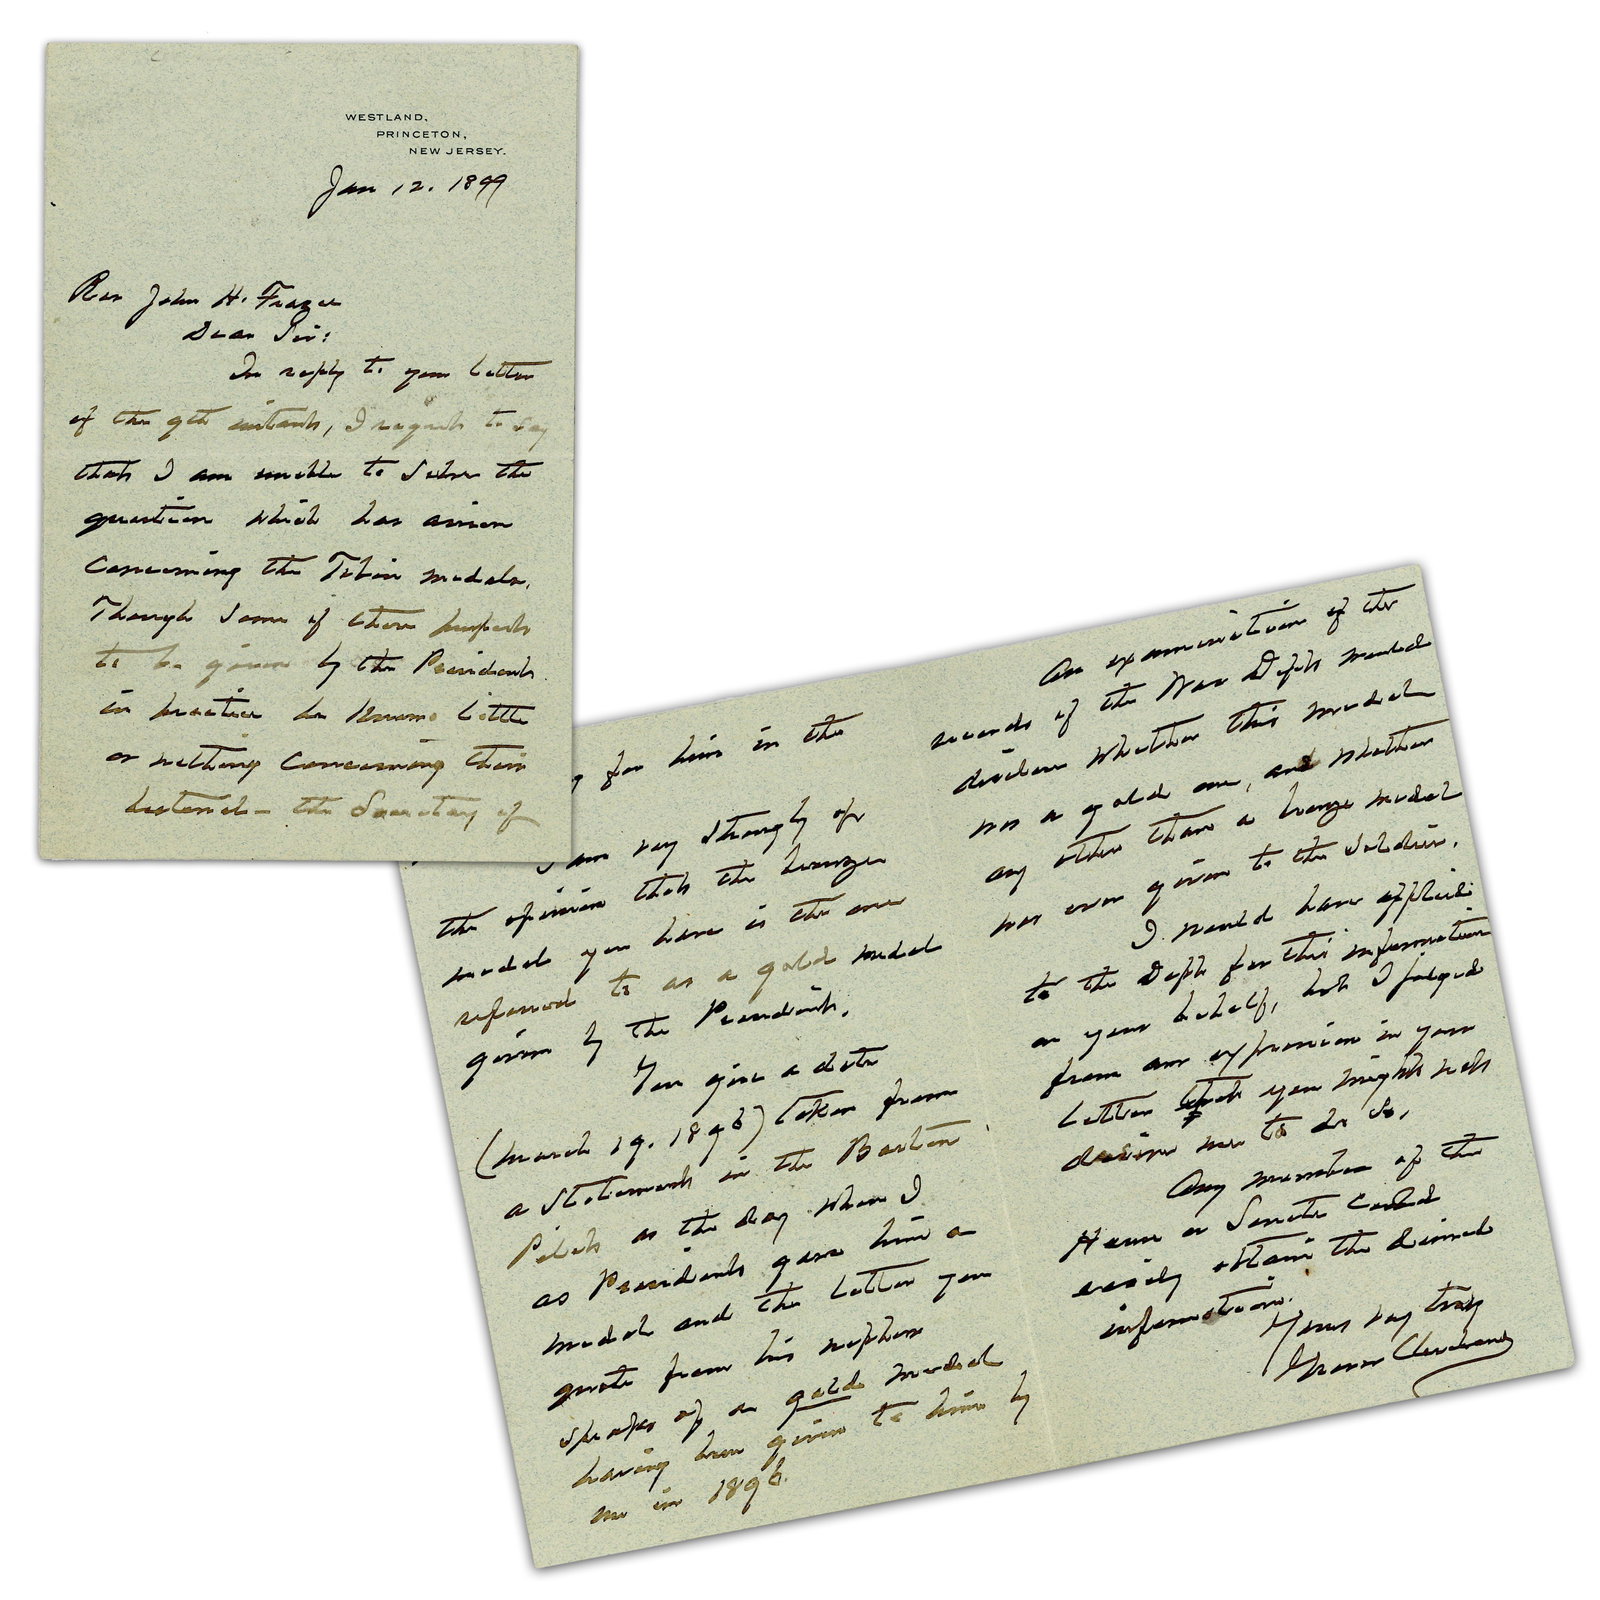 WESTLAND,
PRINCETON,
NEW JERSEY.
Jan 12. 1899
Rev John H. Frazee
Dear Sir:
In reply to your letter
of the 9th instant, I regret to say
that I am unable to solve the
question which has arisen
concerning the Tobin medals.
Though some of these purports
to be given by the President
in practice he knows little
or nothing concerning their
bestowal – the Secretary of
for him in the
I am very strongly of
the opinion that the bronze
medal you have is the one
referred to as a gold medal
given by the President.
You give a date
(March 19. 1896) taken from
a statement in the Boston
Pilot as the day when I
as President gave him a
medal and the letter you
quote from his nephew
speaks of a gold medal
having been given to him by
me in 1896.
An examination of the
records of the War Dept would
disclose whether this medal
was a gold one, and whether
any other than a bronze medal
was ever given to the soldier.
I would have applied
to the Dept for this information
on your behalf, but I judged
from an expression in your
letter that you might not
desire me to do so.
Any member of the
House or Senate could
easily obtain the desired
information.
Yours very truly
Grover Cleveland